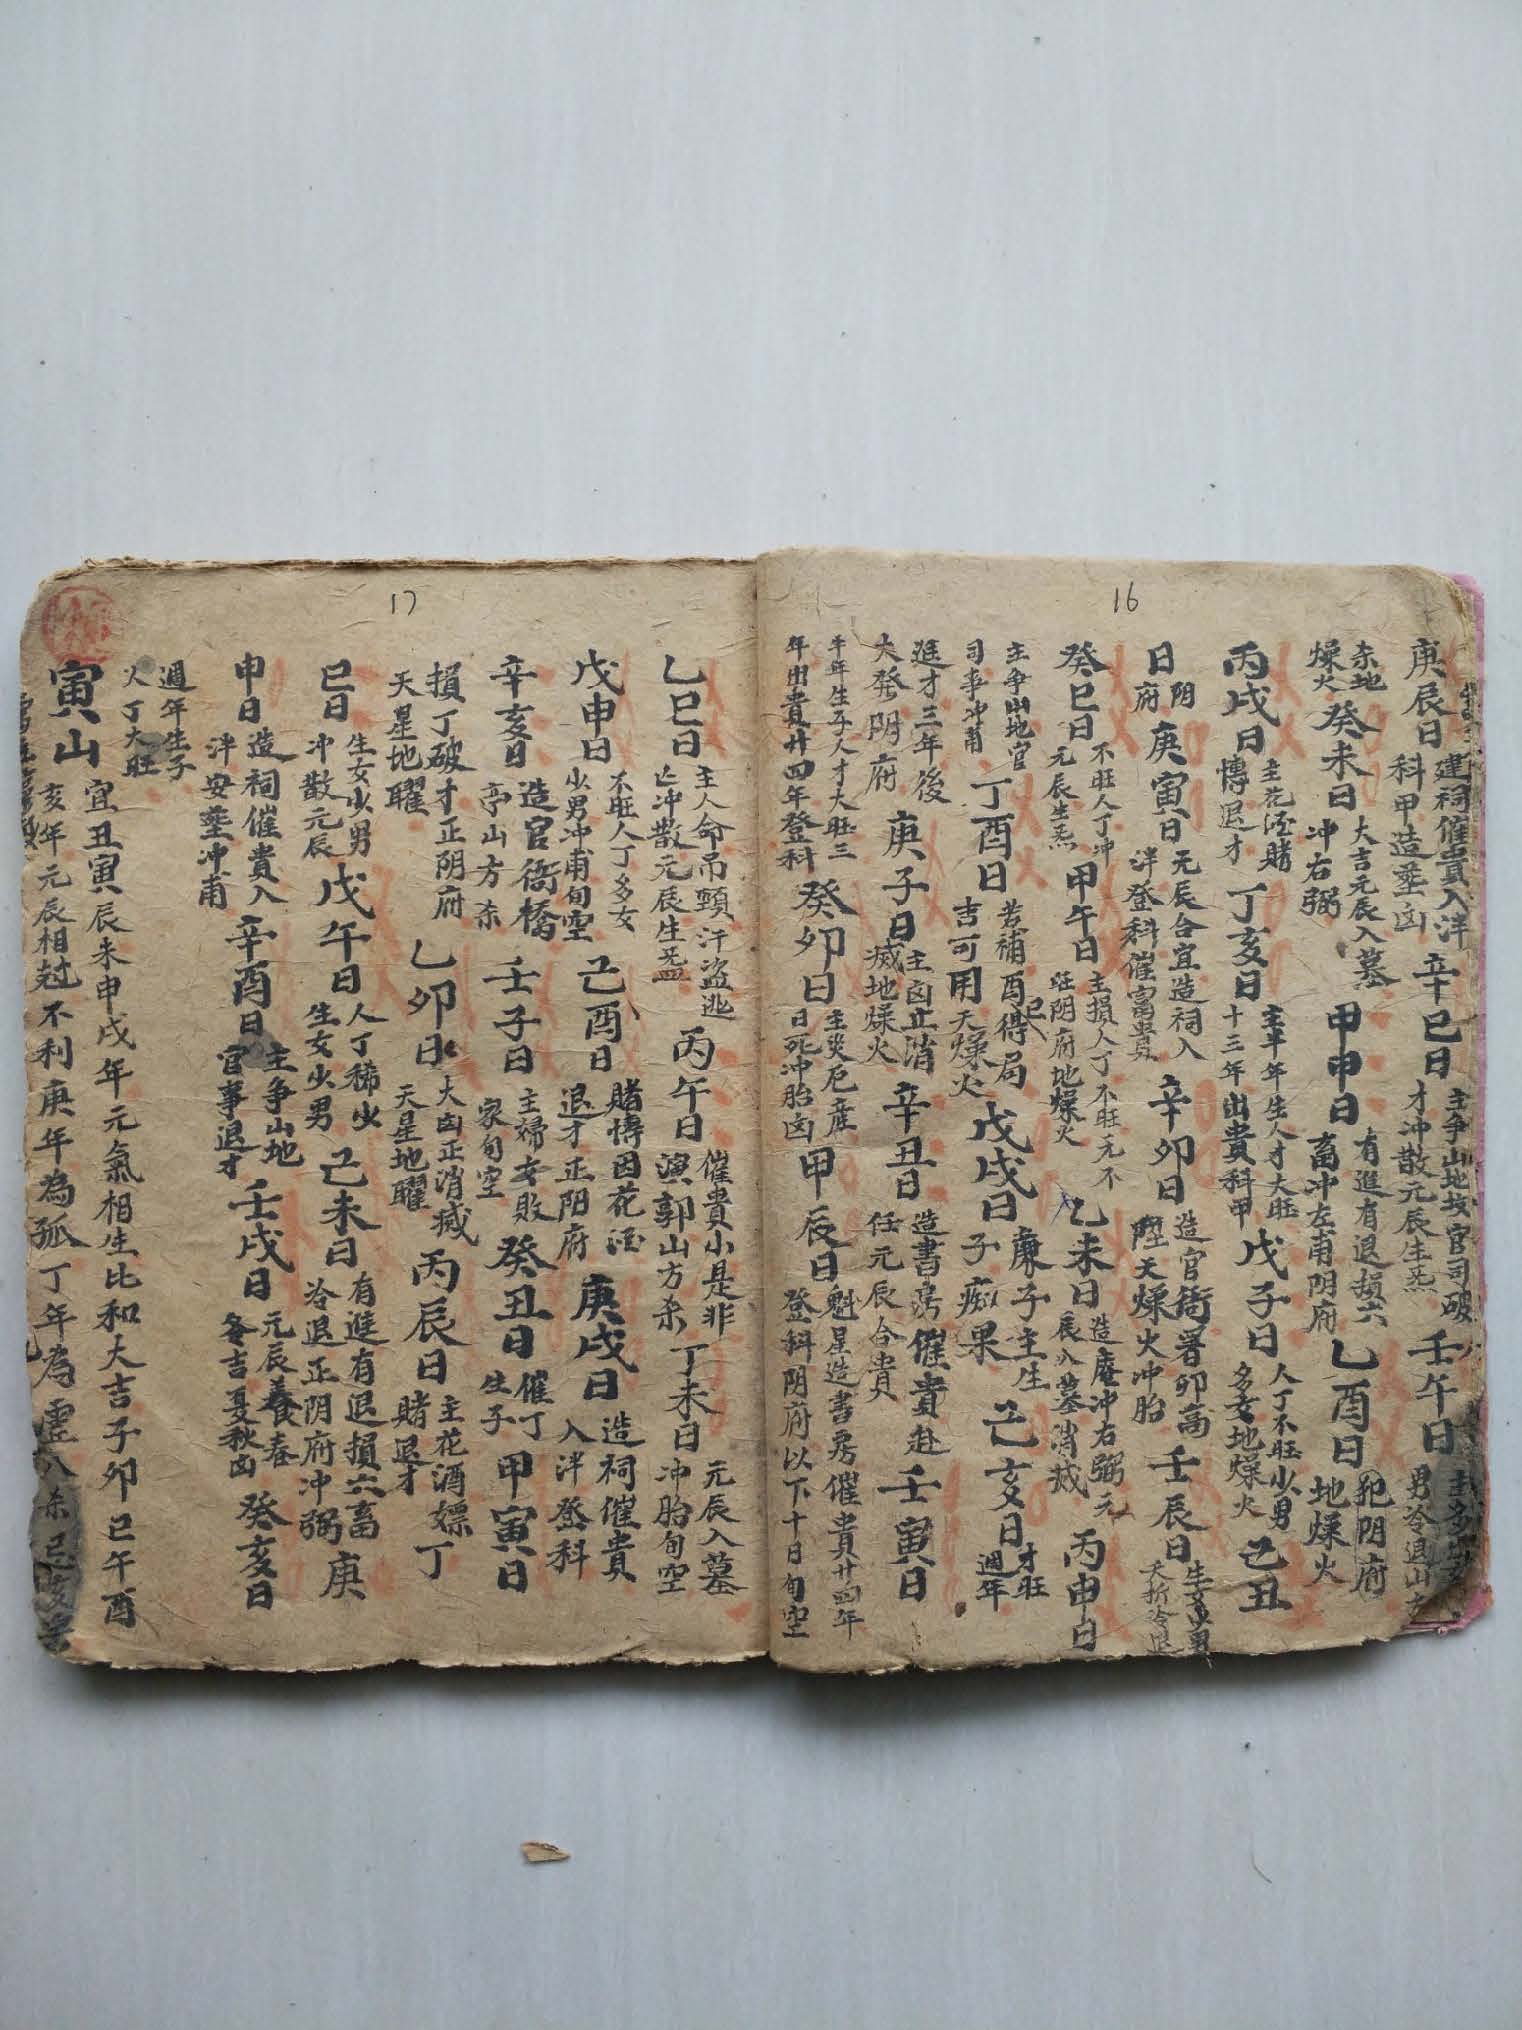 16
庚辰日 建祠催貴入泮 科甲造葬凶 辛巳日 主争山地坟官司破 才冲散元辰生炁 壬午日 男冷退山
杀地燥火 癸未日 大吉元辰入墓 冲右弼 甲申日 有進有退損六 畜冲左甫阴府 乙酉日 犯阴府 地燥火
丙戌日 主花酒賭 博退才 丁亥日 主半年生人才大旺 十三年出貴科甲 戊子日 人丁不旺少男 多女地燥火 己丑
日 阴府 庚寅日 元辰合宜造祠入 泮登科催富貴 辛卯日 造官衙署卯高 陞天燥火冲胎 壬辰日 生女少男 夭折冷退
癸巳日 不旺人丁冲 元辰生炁 甲午日 主損人丁不旺元不 旺阴府地燥火 乙未日 造庵冲右弼元 辰入墓消㓕 丙申日
主争山地官 司事冲甫 丁酉日 若補酉得局 吉可用天燥火 戊戌日 廉子主生 子痴果 己亥日 才旺 週年
進才三年後 大發阴府 庚子日 主凶正消 滅地燥火 辛丑日 造書房催貴赴 任元辰合貴 壬寅日
半年生子人才大旺三 年出貴廿四年登科 癸卯日 主災厄産 日死冲胎凶 甲辰日 魁星造書房催貴廿四年 登科阴府以下十日旬空
17
乙巳日 主人命吊頸汗盗逃 亡冲散元辰生炁 丙午日 催貴小是非 演郭山方杀 丁未日 元辰入墓 冲胎旬空
戊申日 不旺人丁多女 少男冲甫旬空 己酉日 賭博因花酒 退才正阳府 庚戌日 造祠催貴 入泮登科
辛亥日 造官衙橋 亭山方杀 壬子日 主婦女敗 家旬空 癸丑日 催丁 生子 甲寅日
損丁破才正阴府 天星地曜 乙卯日 大凶正消滅 天星地曜 丙辰日 主花酒嫖 賭退才 丁
巳日 生女少男 冲散元辰 戊午日 人丁稀少 生女少男 己未日 有進有退損六畜 冷退正阴府冲弼 庚
申日 造祠催貴入 泮安葬冲甫 辛酉日 主争山地 官事退才 壬戌日 元辰養春 冬吉夏秋凶 癸亥日
週年生子 人丁大旺
寅山 宜丑寅辰未申戌年元氣相生比和大吉子卯巳午酉
亥年元辰相尅不利庚年為孤丁年為虚八杀